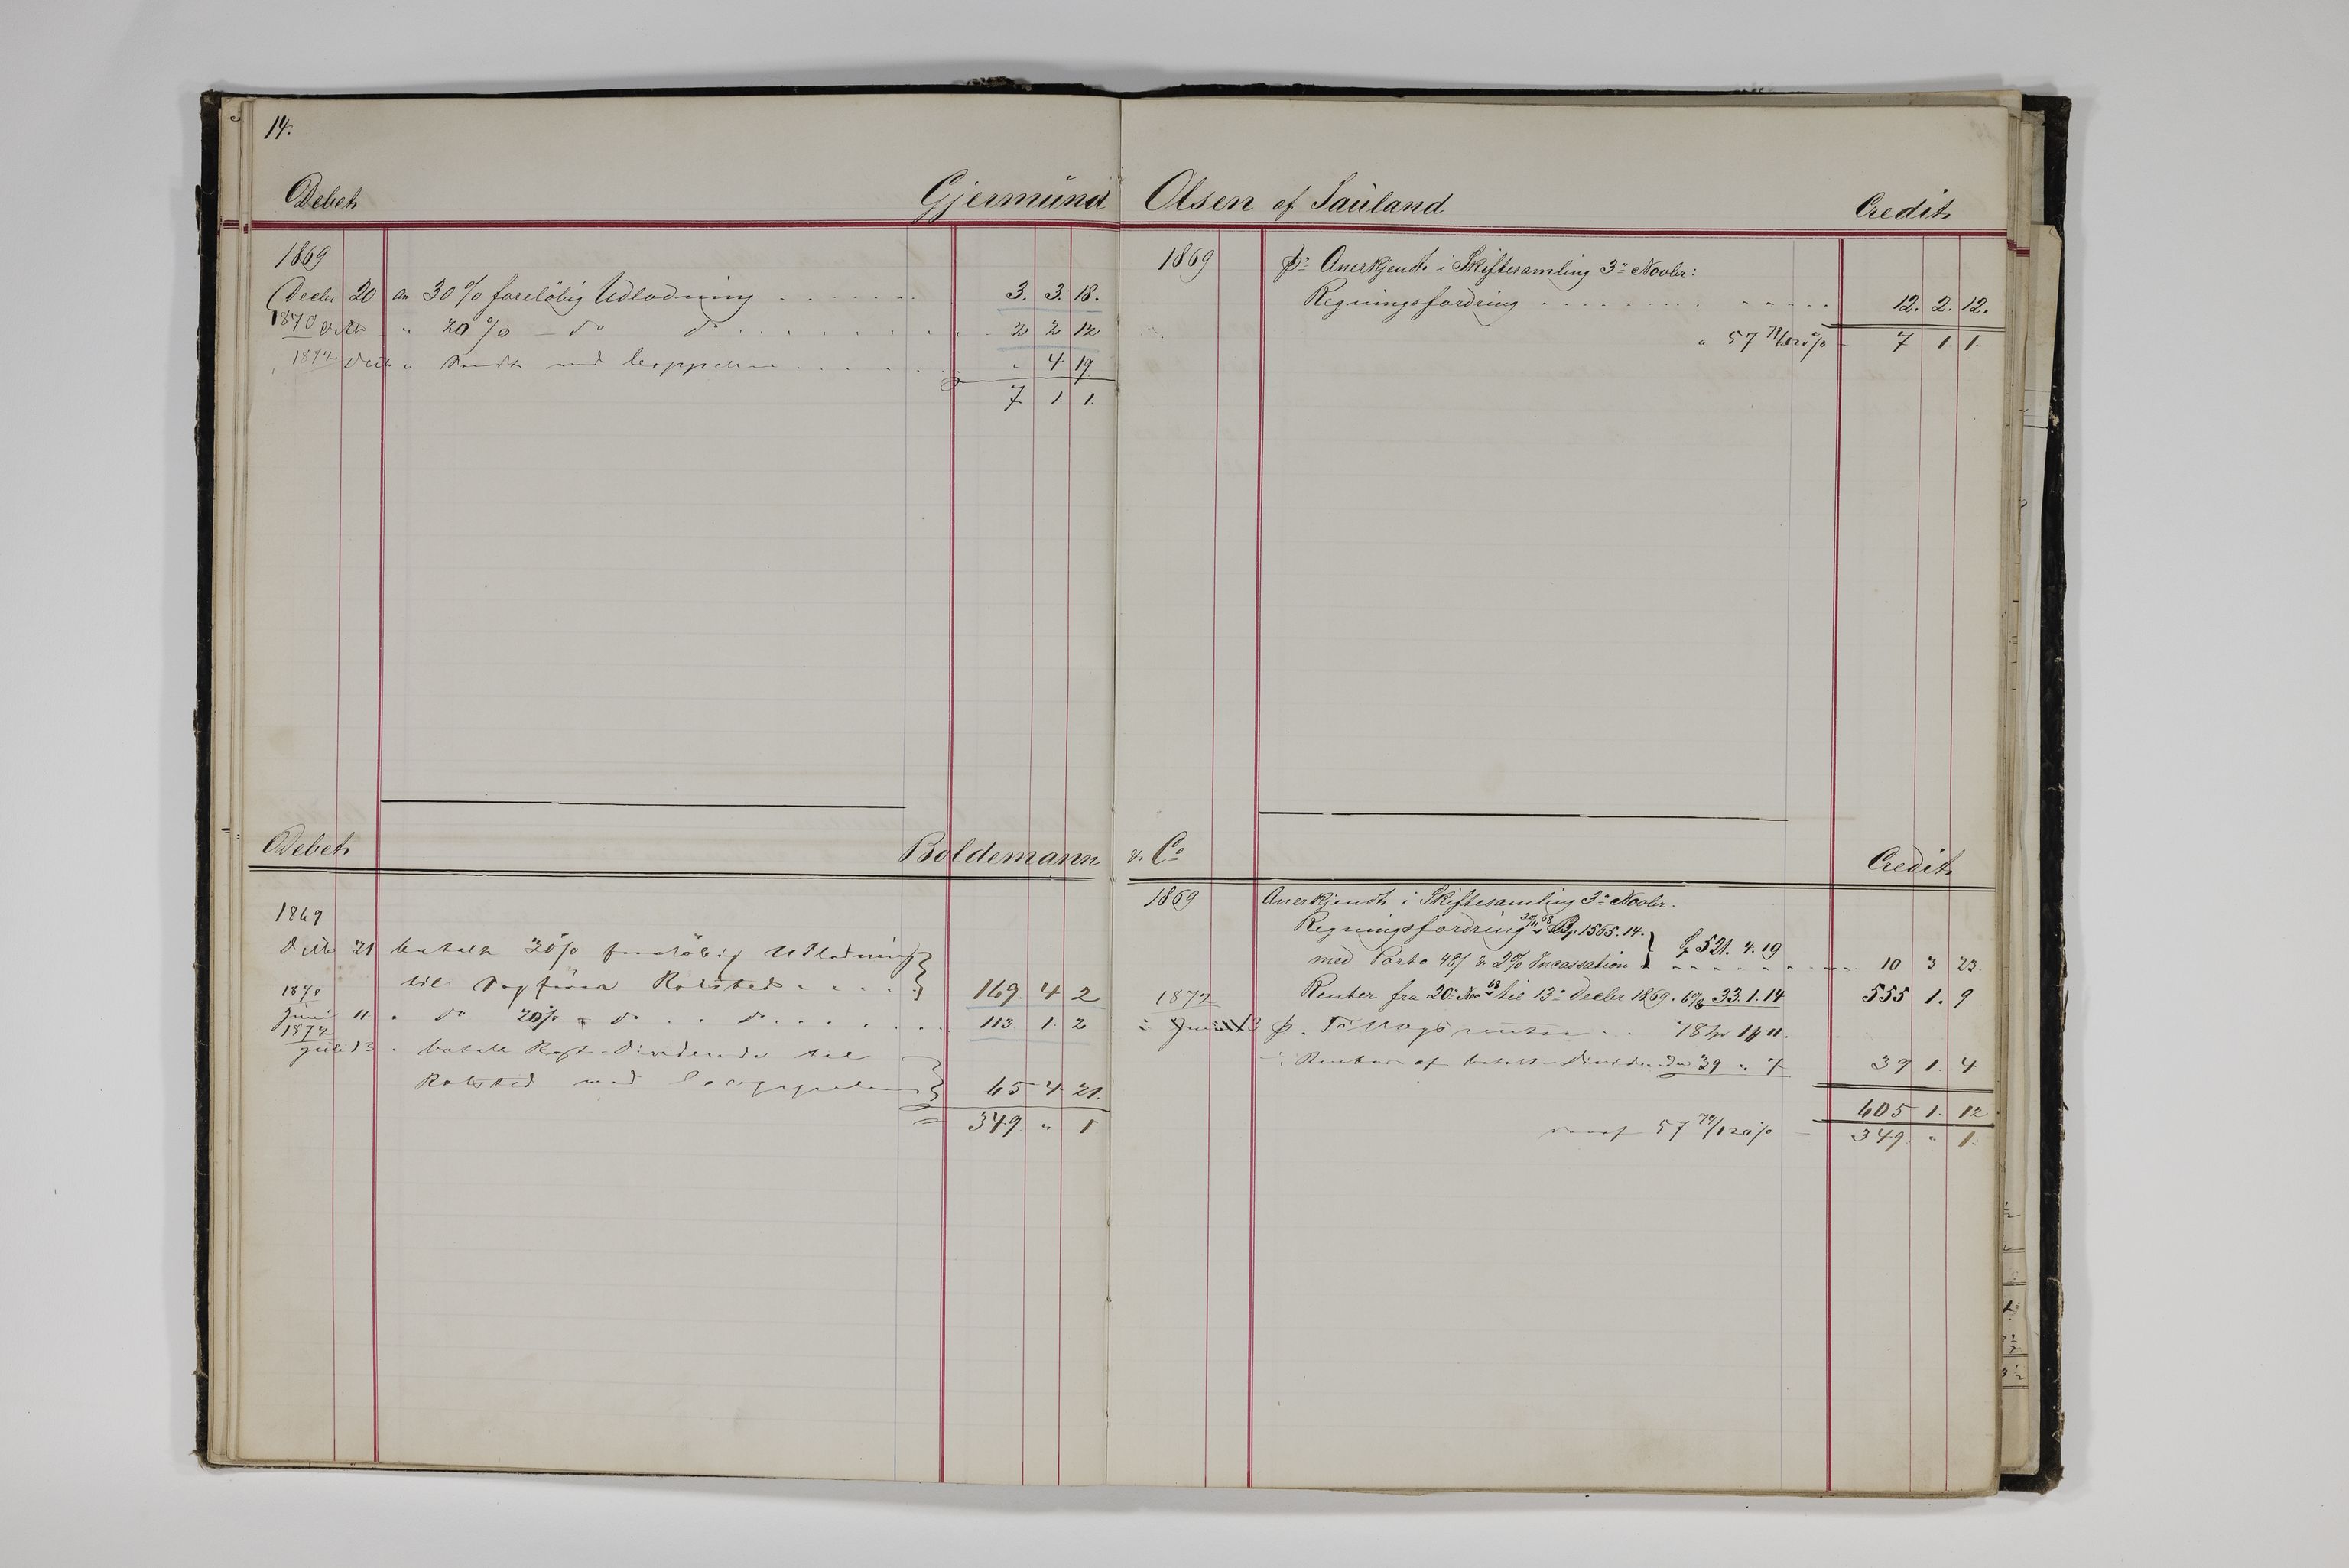 14.
Debet Gjermünd Olsen af Saüland Credit
1869
Decbr 20 an 30% foreløbig Udlodning 3. 3. 18.
1870 " 20% - do do 2 2 12
1872 " Sendt med " 4 19
7 1 1.
1869 pr Anerkjendt i Skiftesamling 3die Novbr:
Regningsfordring 12. 2. 12.
" 57 78/120% - 7 1 1.
Debet Boldemann & Co Credit
1869
Decbr 21 betalt 30% foreløbig Udlodning
til Rolsted 169. 4 2
1870
Juni 11. " do 20% - do do 113 1. 2
1872
Juli 13 " betalt Rest-Dividende til
Rolsted med 65 4 21.
= 349. " 1
1869 Anerkjendt i Skiftesamling 3die Novbr.
Regningsfordring 20/11 68 1565. 14.
med Porto 48/ & 2% Incassation 521. 4. 19
10 3 23
Renter fra 20. Nov 68 til 13. Decbr 1869. 6% 33. 1. 14 555 1. 9
1872
Juli 13 p. Tillægsrenter 78
÷ Renter af betalte Dividender 39 " 7 39 1. 4
605 1. 12
57 78/120% - 349. " 1.